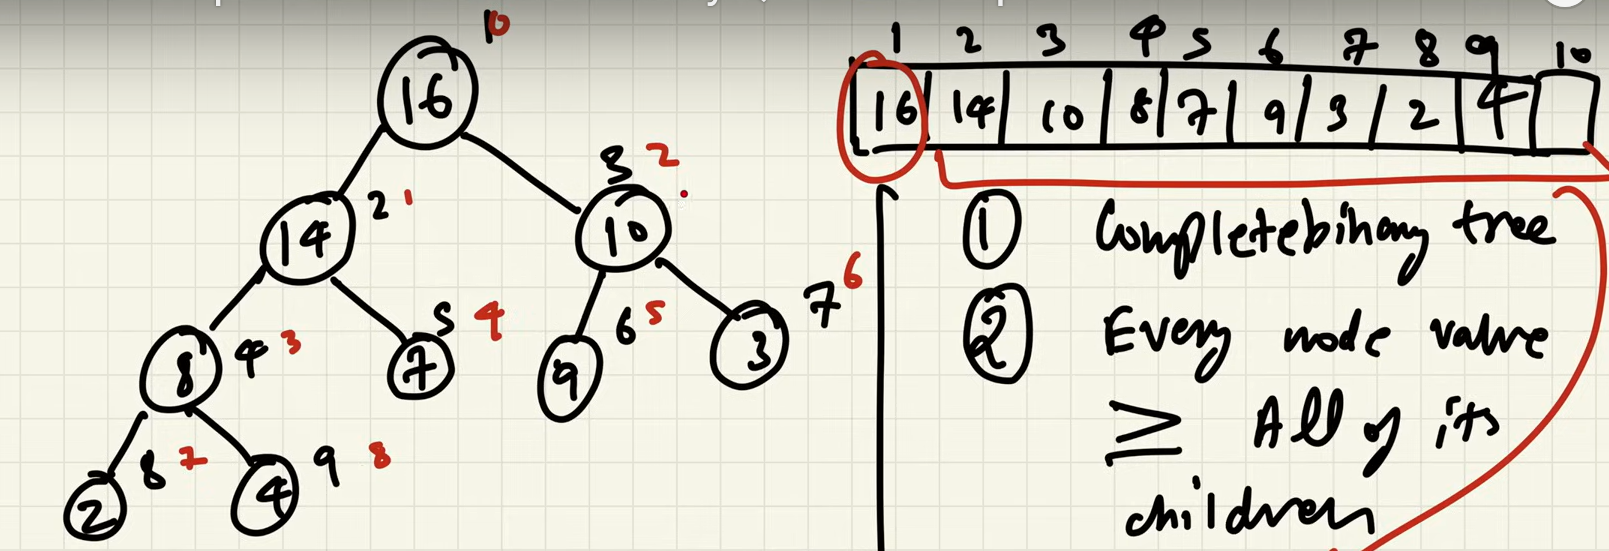 1 0
16
3 2
14 2 1
10
8 4 3
7 5 4
9 6 5
3 7 6
2 8 7
4 9 8
1 2 3 4 5 6 7 8 9 10
16 14 10 8 7 9 3 2 4
① Completebinary tree
② Every node value
≥ All of its
children